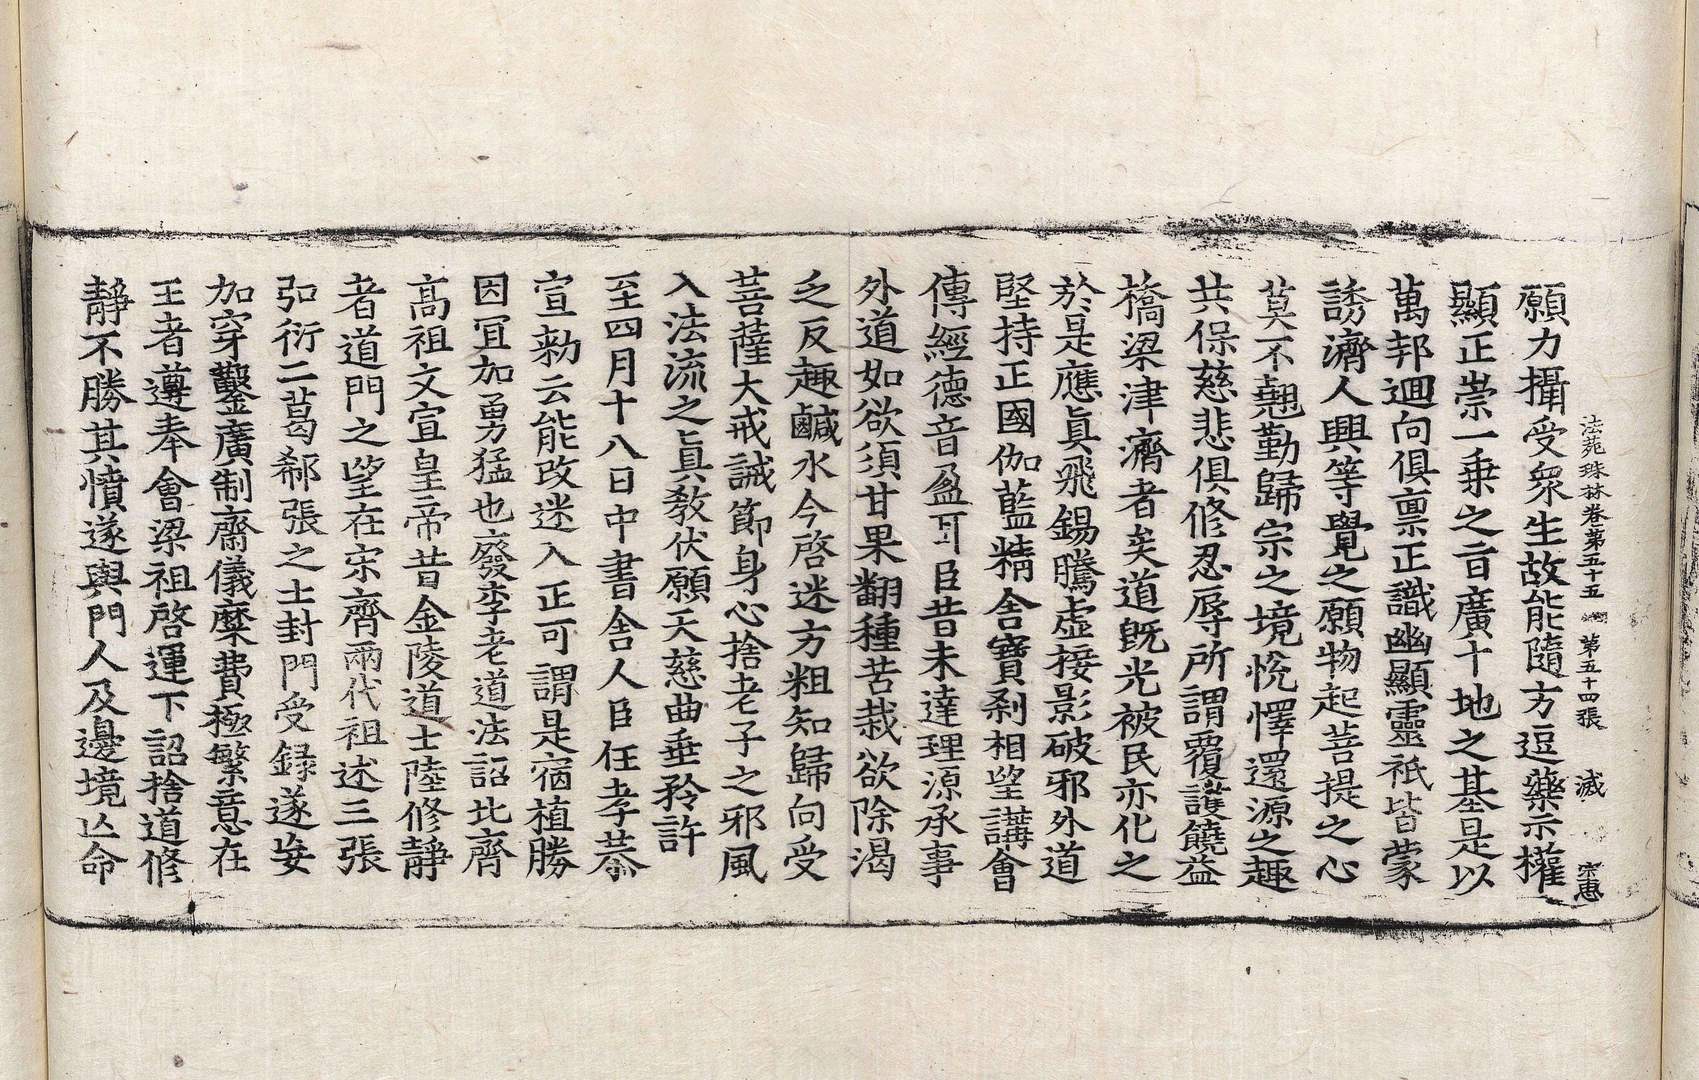 法苑珠林卷第五十五 第五十四張 滅 宗惠
願力攝受衆生故能隨方逗藥示權
顯正崇一乗之旨廣十地之基是以
萬邦迴向俱禀正識幽顯靈祇皆蒙
誘濟人興等覺之願物起菩提之心
莫不翹勤歸宗之境恱懌還源之趣
共保慈悲俱修忍辱所謂覆護饒益
橋梁津濟者矣道旣光被民亦化之
於是應眞飛錫騰虛接影破邪外道
堅持正國伽藍精舍寶刹相望講會
傳經德音盈耳臣昔未達理源承事
外道如欲須甘果翻種苦栽欲除渴
乏反趣鹹水今啓迷方粗知歸向受
菩薩大戒誡節身心捨老子之邪風
入法流之眞教伏願天慈曲垂矜許
至四月十八日中書舍人臣任孝恭
宣勑云能改迷入正可謂是宿植勝
因冝加勇猛也廢李老道法詔北齊
高祖文宣皇帝昔金陵道士陸修靜
者道門之望在宋齊兩代祖述三張
弘衍二葛郗張之士封門受録遂妄
加穿鑿廣制齋儀糜費極繁意在
王者遵奉會梁祖啓運下詔捨道修
靜不勝其憤遂與門人及邊境亾命